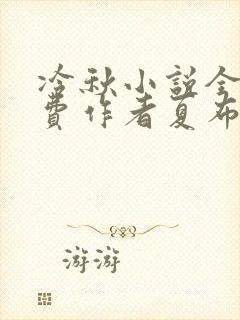 冷秋小说全
费作者夏布
游游